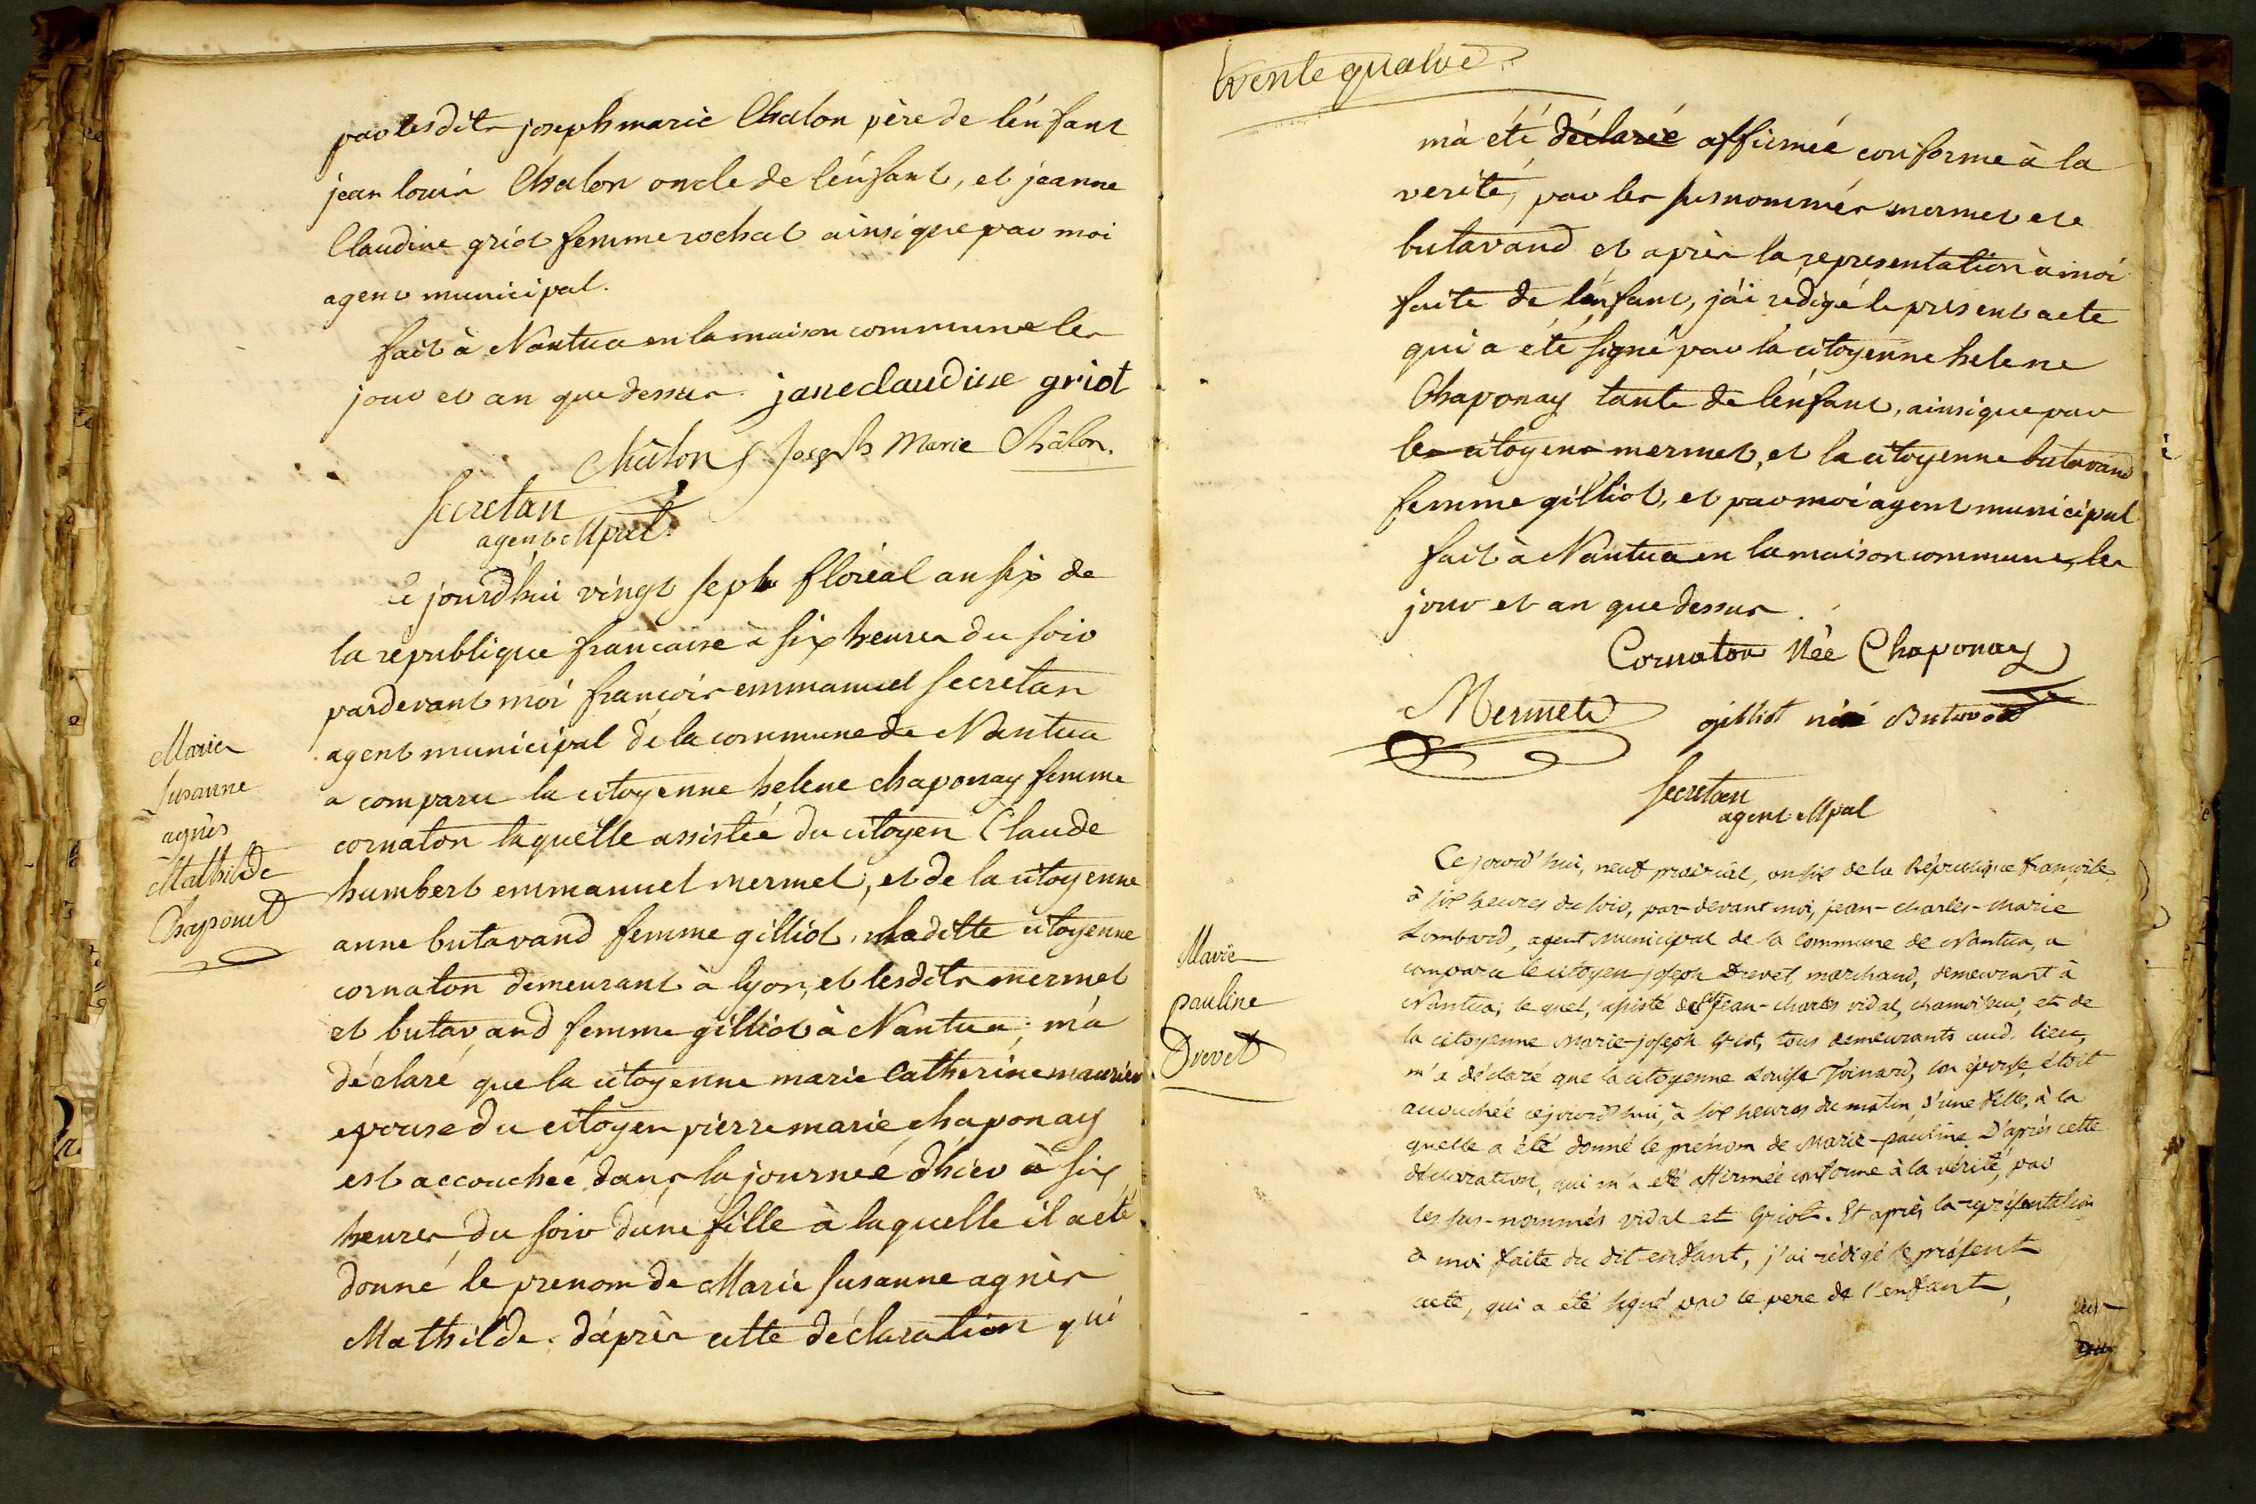 par lesdits joseph marie Chalon père de lénfant
jean louis Chalon oncle de lénfant, et jeanne
Claudine griot femme rochat ainsi que par moi
agent municipal.
fait à Nantua en la maison commune les
jour et an que dessus. janeclaudine griot
Châlon Joseph Marie Châlon.
Secretan
agent Mpal.
Ce jourdhui vingt sept floréal an six de
la république francaise à six heures du soir
pardevant moi françois emmanuel Secretan
agent municipal de la commune de Nantua
a comparu la citoyenne helene chaponay femme
cornaton laquelle assistée du citoyen Claude
humbert emmanuel mermet, et de la citoyenne
anne butavand femme gilliot, laditte citoyenne
cornaton demeurant à lyon, et lesdits mermet
et butavand femme gilliot à Nantua; m'a
déclaré que la citoyenne marie Catherine maurier
epouse du citoyen pierre marie chaponay
est accouchée dans la journée dhier à six
heures du soir dune fille à laquelle il a été
donné le prenom de Marie Susanne agnès
Mathilde. d'après cette déclaration qui
Marie
Susanne
agnès
Mathilde
Chaponet
trente quatre
m'a été déclarée affirmée conforme à la
verité, par les susnommés mermet et
butavand et après la representation à moi
faite de lénfant, j'ai rédigé le present acte
qui a été signé par la citoyenne helene
Chaponay tante de lénfant, ainsi que par
le citoyens mermet, et la citoyenne butavand
femme gilliot, et par moi agent municipal
fait à Nantua en la maison commune, les
jour et an que dessus.
Cornaton Née Chaponay
Mermet gilliot née Butavand
Secretan
agent Mpal
Ce jourd'hui, neuf prairial, an six de la République françoise,
à six heures du soir, par-devant moi, jean-charles-marie
Lombard, agent municipal de la Commune de Nantua, a
comparu le citoyen joseph Drevet, marchand, demeurant à
Nantua; le quel, assisté de jean-charles vidal, chamoiseur, et de
la citoyenne Marie-joseph griot, tous demeurants aud. lieu,
m'a déclaré que la citoyenne Louise Joinard, son épouse, étoit
accouchée cejourd'hui, à six heures du matin, d'une fille, à la
quelle a été donné le prénom de Marie-pauline. D'après cette
déclaration, qui m'a été affirmée conforme à la vérité, par
les sus-nommés vidal et griot. Et après la représentation
à moi faite du dit enfant, j'ai rédigé le présent
acte, qui a été signé par le pere de l'enfant,
Marie
pauline
Drevet